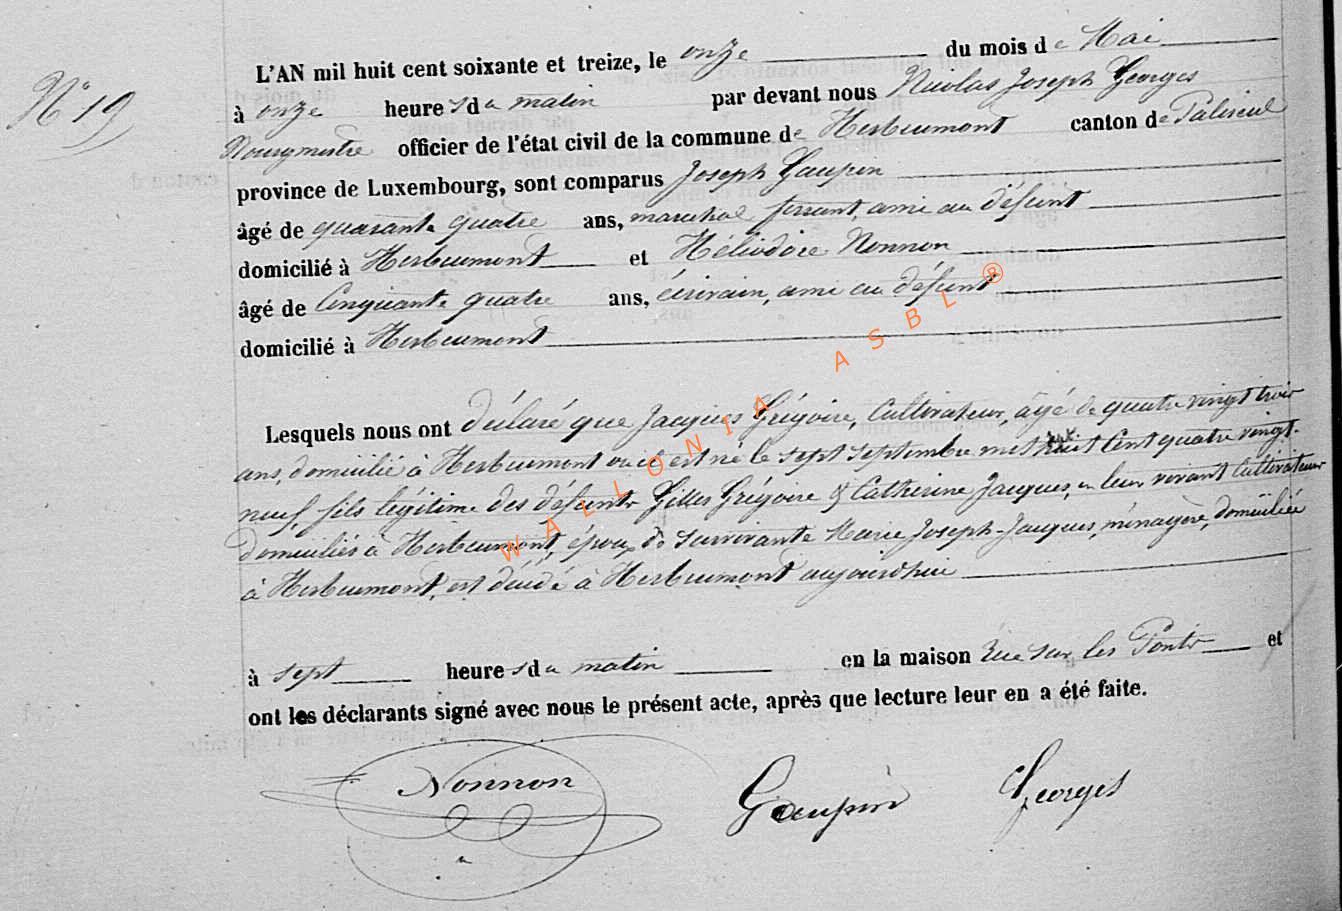 N° 19
L'AN mil huit cent soixante et treize, le onze du mois de Mai
à onze heures du matin par devant nous Nicolas Joseph Georges
Bourgmestre officier de l'état civil de la commune de Herbeumont canton de Paliseul
province de Luxembourg, sont comparus Joseph Gaupin
âgé de quarante quatre ans, maréchal ferrant, ami au défunt
domicilié à Herbeumont et Héliodore Nonnon
âgé de Cinquante quatre ans, écrivain, ami au défunt
domicilié à Herbeumont
Lesquels nous ont déclaré que Jacques Grégoire, Cultivateur, âgé de quatre vingt trois
ans, domicilié à Herbeumont où il est né le sept Septembre mil huit Cent quatre vingt
neuf, fils légitime des défunts Gilles Grégoire & Catherine Jacques, en leur vivant Cultivateurs
domiciliés à Herbeumont, époux de survivante Marie Joseph Jacques, ménagère, domiciliée
à Herbeumont, est décédé à Herbeumont aujourdhui
à sept heures du matin en la maison rue sur les Ponts et
ont les déclarants signé avec nous le présent acte, après que lecture leur en a été faite.
Nonnon Gaupin Georges
WALLONIA ASBL ®